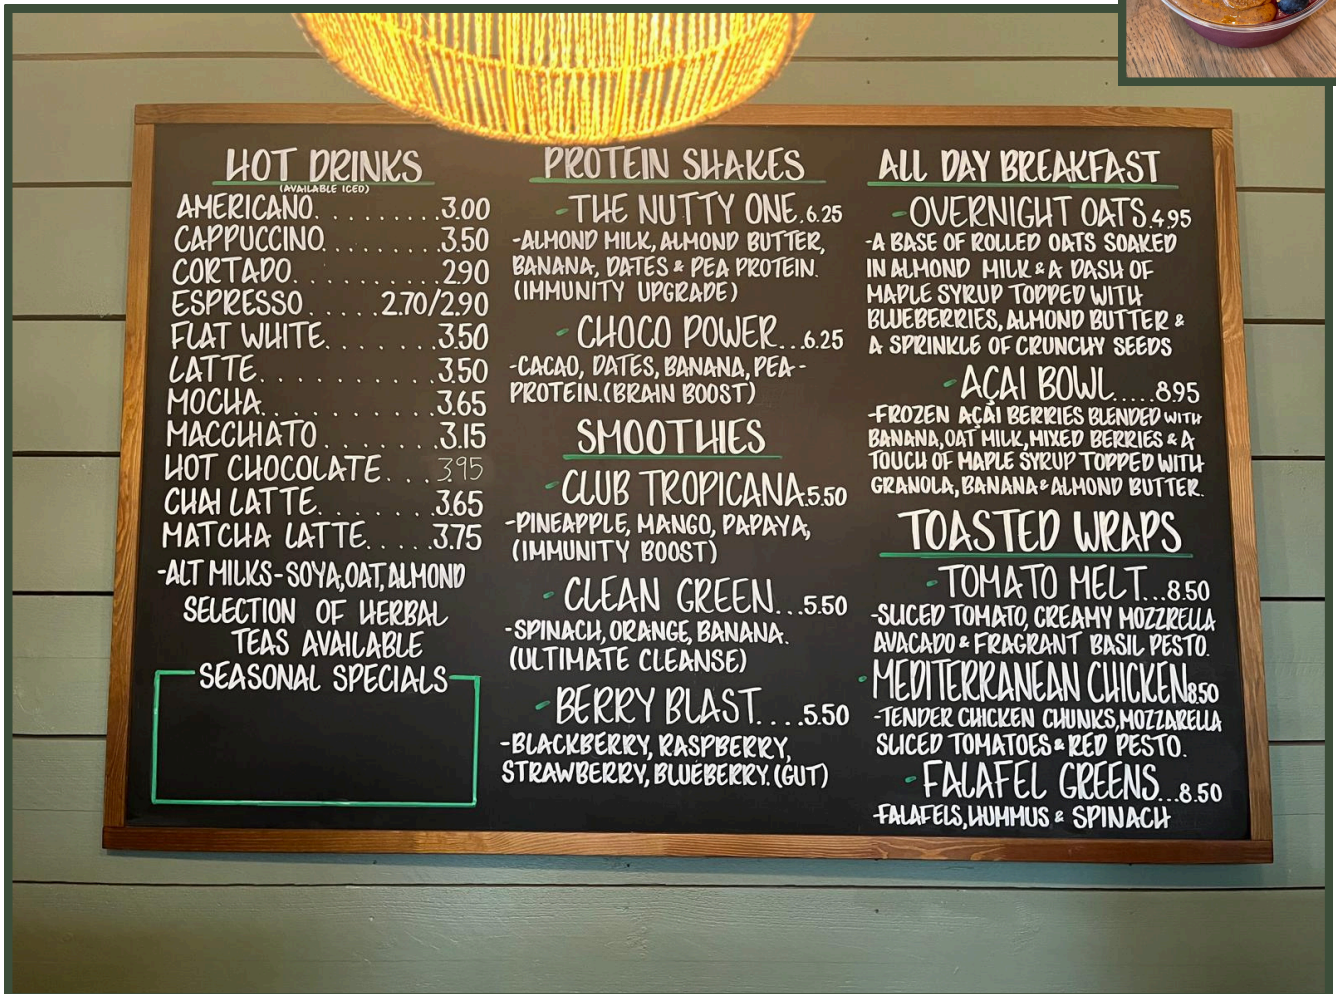 HOT DRINKS
(AVAILABLE ICED)
AMERICANO.........3.00
CAPPUCCINO........3.50
CORTADO..........2.90
ESPRESSO.....2.70/2.90
FLAT WHITE.......3.50
LATTE...........3.50
MOCHA..........3.65
MACCHIATO.......3.15
HOT CHOCOLATE...3.95
CHAI LATTE.......3.65
MATCHA LATTE.....3.75
-ALT MILKS-SOYA,OAT,ALMOND
SELECTION OF HERBAL
TEAS AVAILABLE
SEASONAL SPECIALS
PROTEIN SHAKES
-THE NUTTY ONE.6.25
-ALMOND MILK, ALMOND BUTTER,
BANANA, DATES & PEA PROTEIN.
(IMMUNITY UPGRADE)
-CHOCO POWER...6.25
-CACAO, DATES, BANANA, PEA--
PROTEIN.(BRAIN BOOST)
SMOOTHIES
-CLUB TROPICANA.5.50
-PINEAPPLE, MANGO, PAPAYA,
(IMMUNITY BOOST)
-CLEAN GREEN...5.50
-SPINACH, ORANGE, BANANA.
(ULTIMATE CLEANSE)
-BERRY BLAST....5.50
-BLACKBERRY, RASPBERRY,
STRAWBERRY, BLUEBERRY. (GUT)
ALL DAY BREAKFAST
-OVERNIGHT OATS.4.95
-A BASE OF ROLLED OATS SOAKED
IN ALMOND MILK & A DASH OF
MAPLE SYRUP TOPPED WITH
BLUEBERRIES, ALMOND BUTTER &
A SPRINKLE OF CRUNCHY SEEDS
-AÇAI BOWL.....8.95
-FROZEN AÇAI BERRIES BLENDED WITH
BANANA, OAT MILK, MIXED BERRIES & A
TOUCH OF MAPLE SYRUP TOPPED WITH
GRANOLA, BANANA & ALMOND BUTTER.
TOASTED WRAPS
-TOMATO MELT...8.50
-SLICED TOMATO, CREAMY MOZZRELLA
AVACADO & FRAGRANT BASIL PESTO.
-MEDITERRANEAN CHICKEN8.50
-TENDER CHICKEN CHUNKS, MOZZARELLA
SLICED TOMATOES & RED PESTO.
-FALAFEL GREENS...8.50
-FALAFELS, HUMMUS & SPINACH